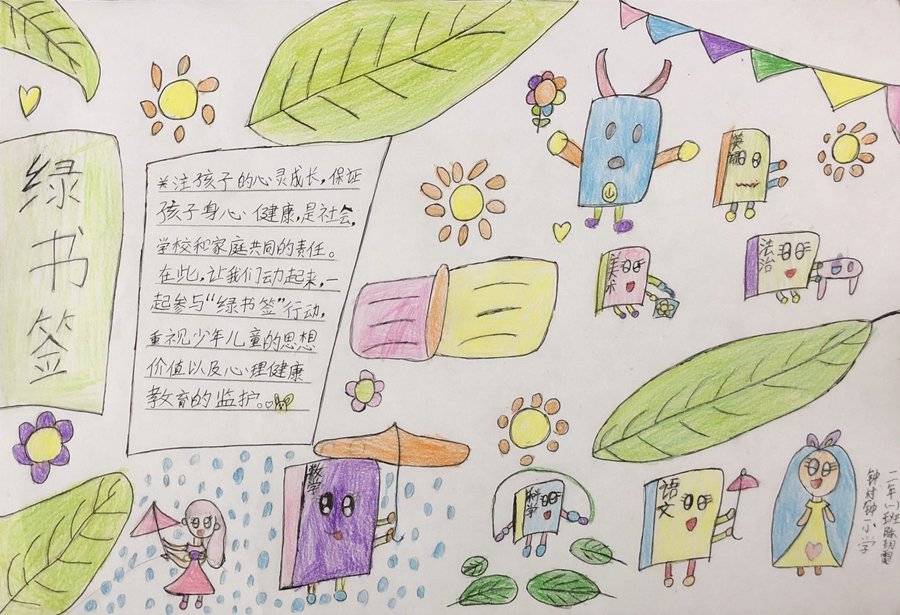 绿书签
关注孩子的心灵成长，保证
孩子身心健康，是社会，
学校和家庭共同的责任。
在此，让我们动起来，一
起参与“绿书签”行动，
重视少年儿童的思想
价值以及心理健康
教育的监护。
英语
美术
法治
数学
科学
语文